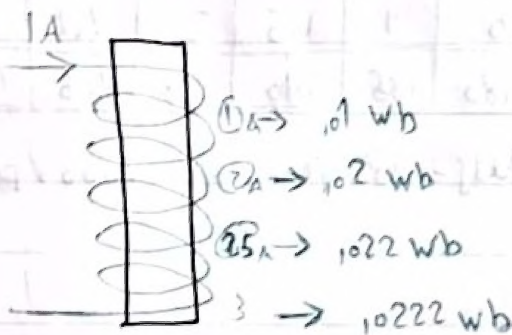 1A
①A→ ,01 wb
②A → ,02 wb
25A → ,022 wb
3 → ,0222 wb